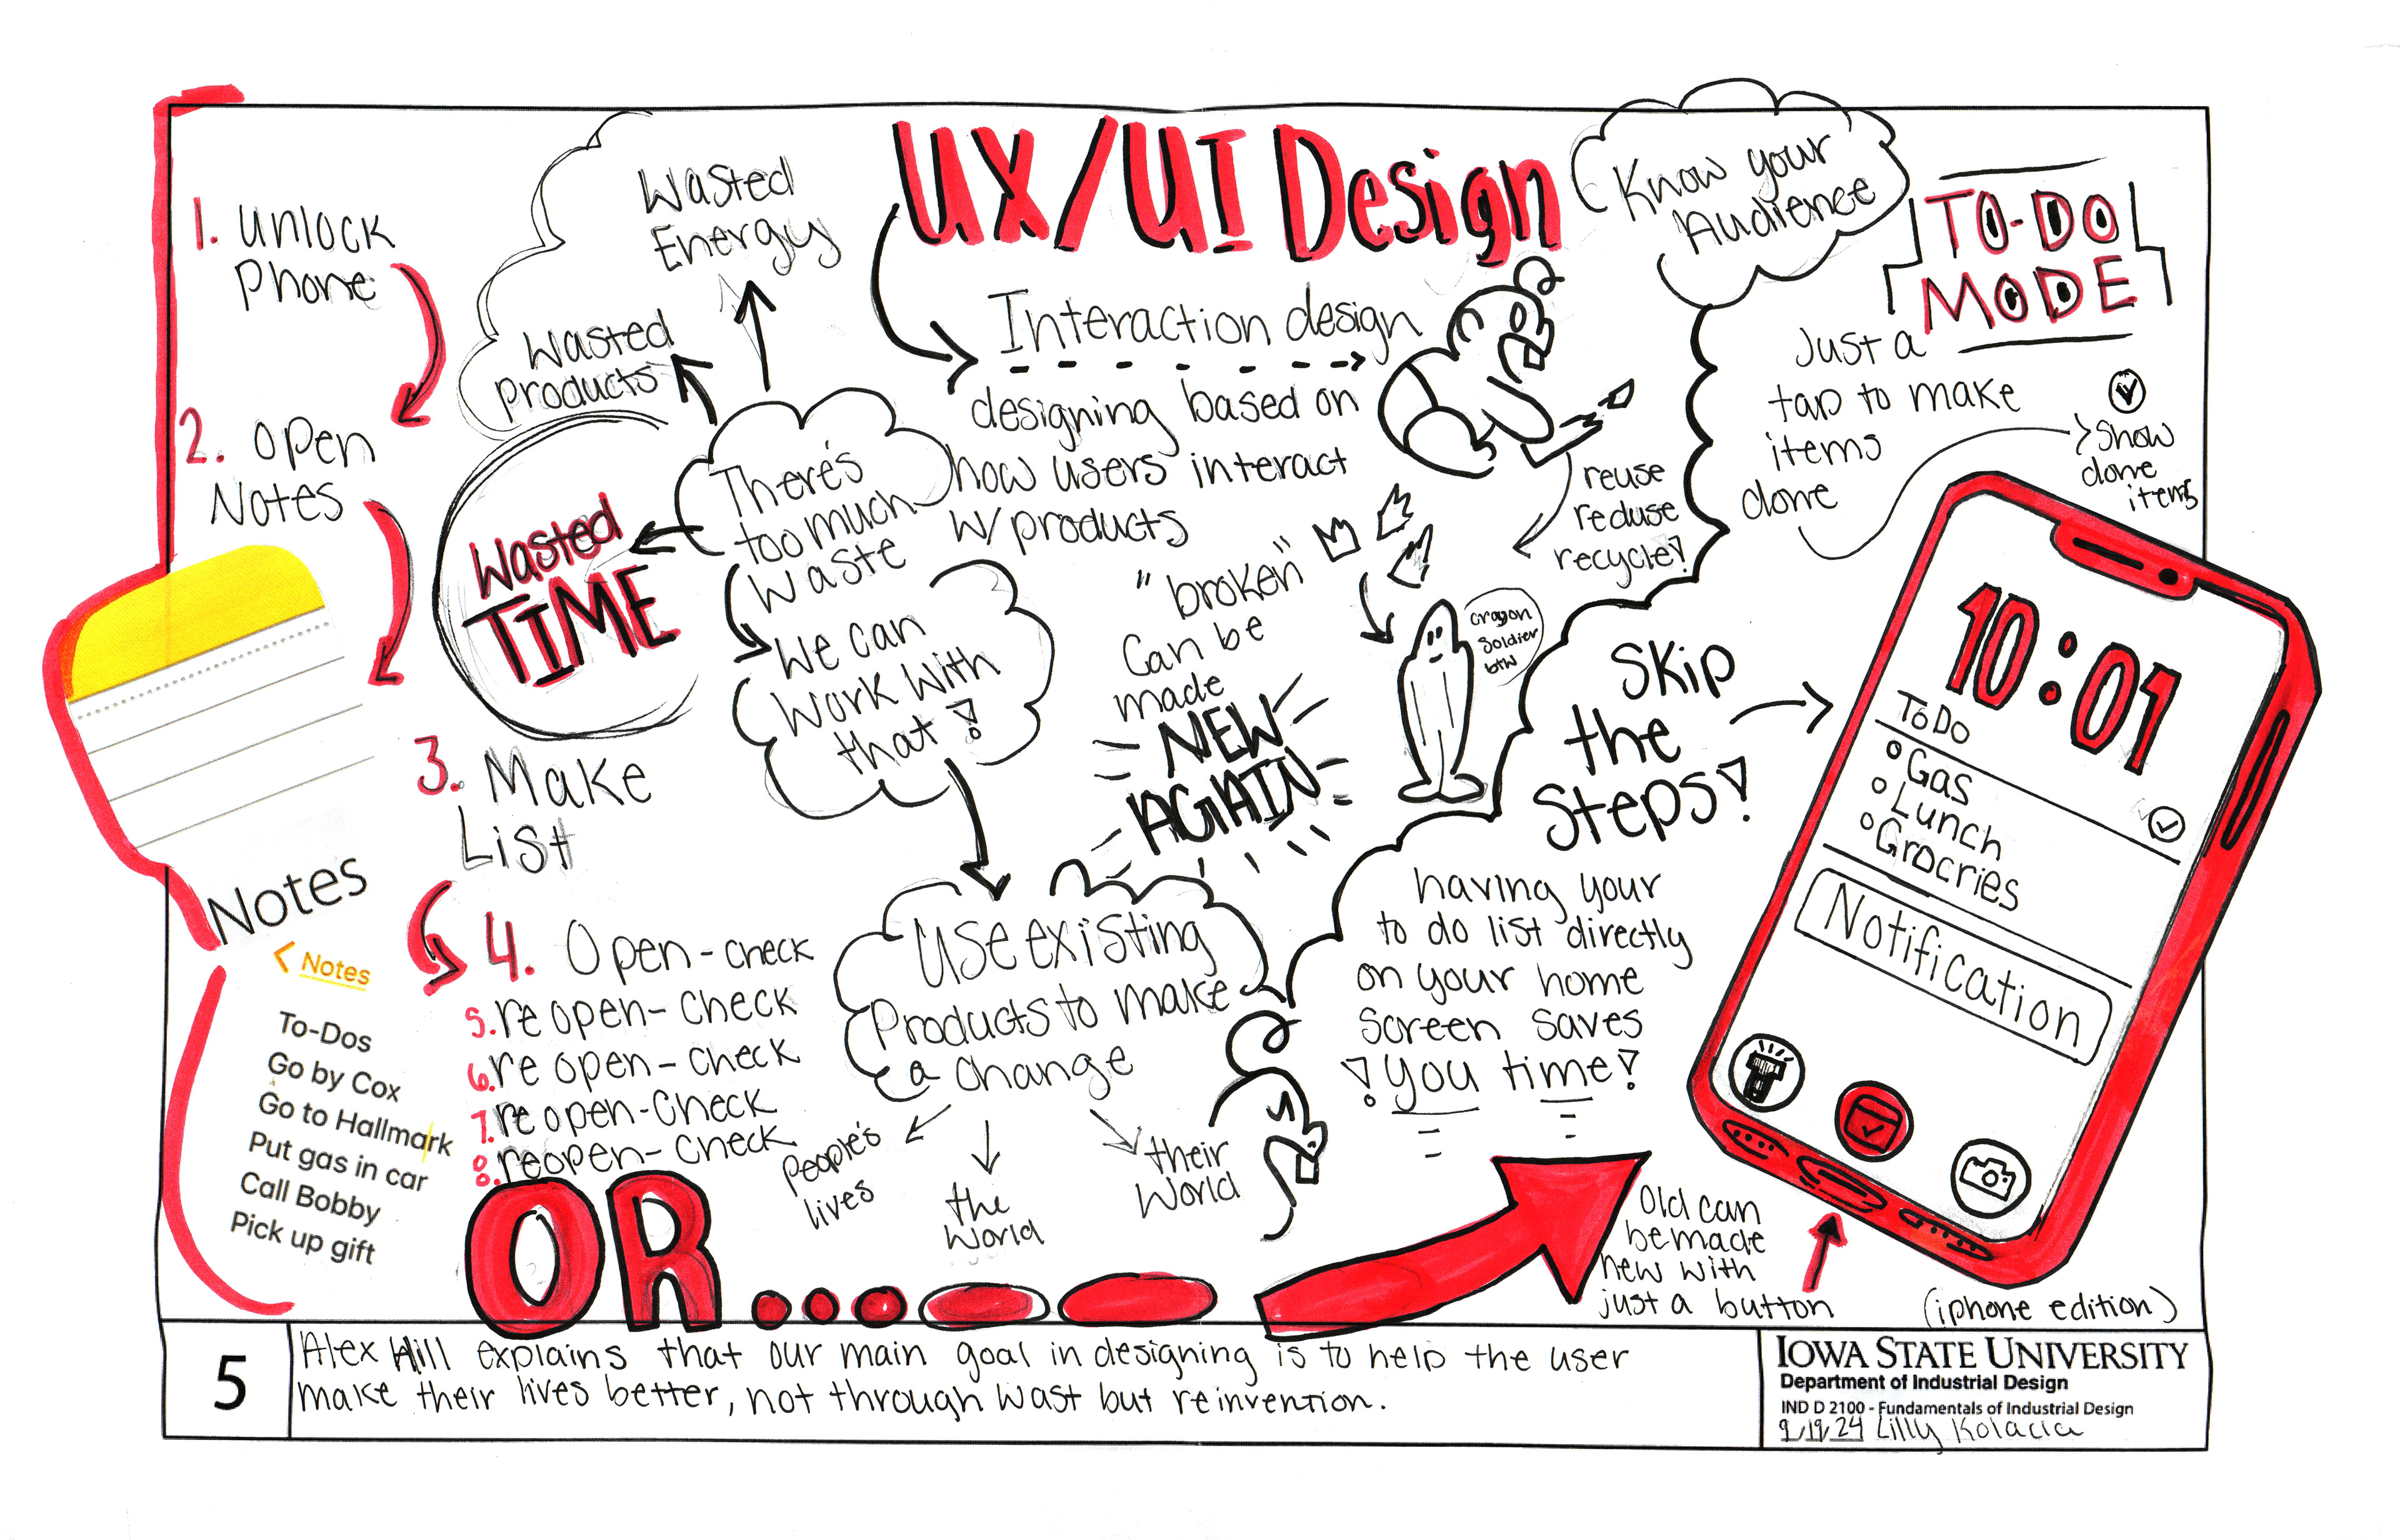 UX/UI Design
Interaction design
designing based on
how users interact
w/products
1. Unlock
Phone
2. Open
Notes
3. Make
List
4. Open-check
5. re open-check
6. re open-check
7. re open-check
8. reopen-check
Notes
< Notes
To-Dos
Go by Cox
Go to Hallmark
Put gas in car
Call Bobby
Pick up gift
OR...
Wasted
Energy
Wasted
Products
Wasted
TIME
There's
too much
waste
We can
Work With
that!
Use existing
Products to make
a change
People's
lives
the
World
their
World
"broken"
Can be
made
NEW
AGAIN
reuse
reduse
recycle!
crayon
soldier
btw
Know your
Audience
TO-DO
MODE
Just a
tap to make
items
done
>Show
done
items
Skip
the
Steps!
having your
to do list directly
on your home
screen saves
!you time!
10:01
To Do
Gas
Lunch
Grocries
Notification
Old can
be made
new with
just a button
(iphone edition)
5
Alex Hill explains that our main goal in designing is to help the user
make their lives better, not through wast but reinvention.
IOWA STATE UNIVERSITY
Department of Industrial Design
IND D 2100 - Fundamentals of Industrial Design
9/19/24 Lilly Kolacia